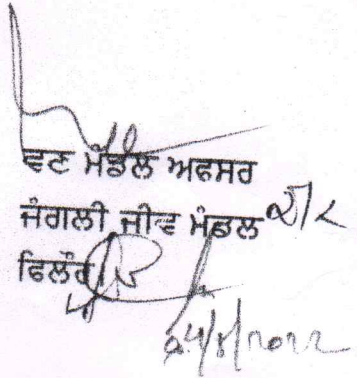 ਵਣ ਮੰਡਲ ਅਫਸਰ
ਜੰਗਲੀ ਜੀਵ ਮੰਡਲ
ਫਿਲੌਰ